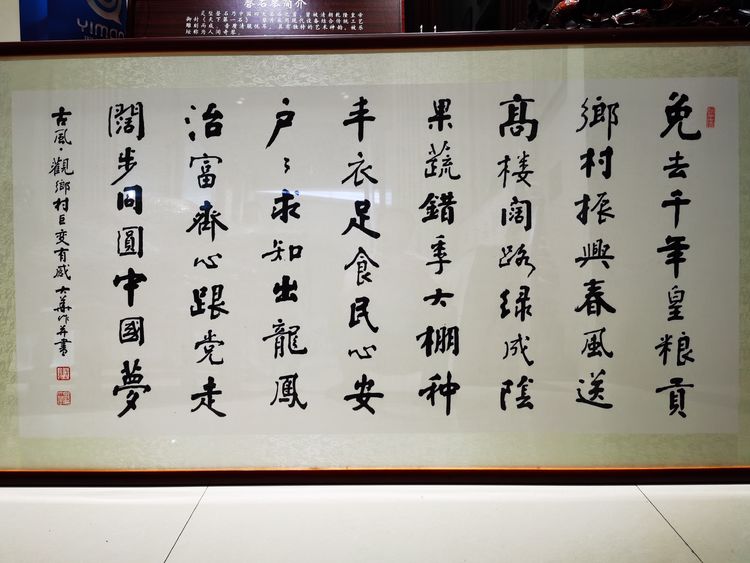 YIMON
磬石琴简介
免去千年皇粮貢
鄉村振興春風送
高楼阔路绿成陰
果蔬錯季大棚种
丰衣足食民心安
户々求知出龍鳳
治富齊心跟党走
闊步同圓中國夢
古風·觀鄉村巨变有感 大華作并書